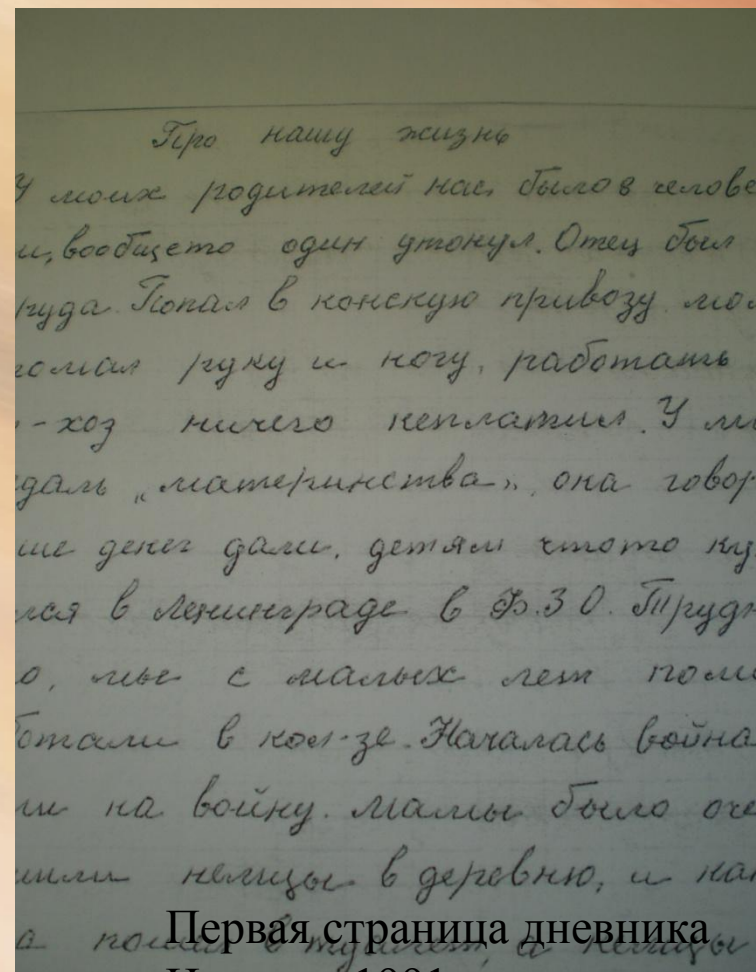 Про нашу жизнь
У моих родителей нас было 8 челове
и, вообщето один утонул. Отец был
руда. Попал в конскую привозу мол
ломал руку и ногу, работать
-хоз ничего неплатил. У м
даль „материнства", она говор
ше денег дали, детям чтото ку
лся в Ленинграде в Ф.З О. Трудн
о, мы с малых лет помо
ботали в кол-зе. Началась война
ли на войну. Мамы было оче
шли немцы в деревню, и на
а в а немцы
Первая страница дневника